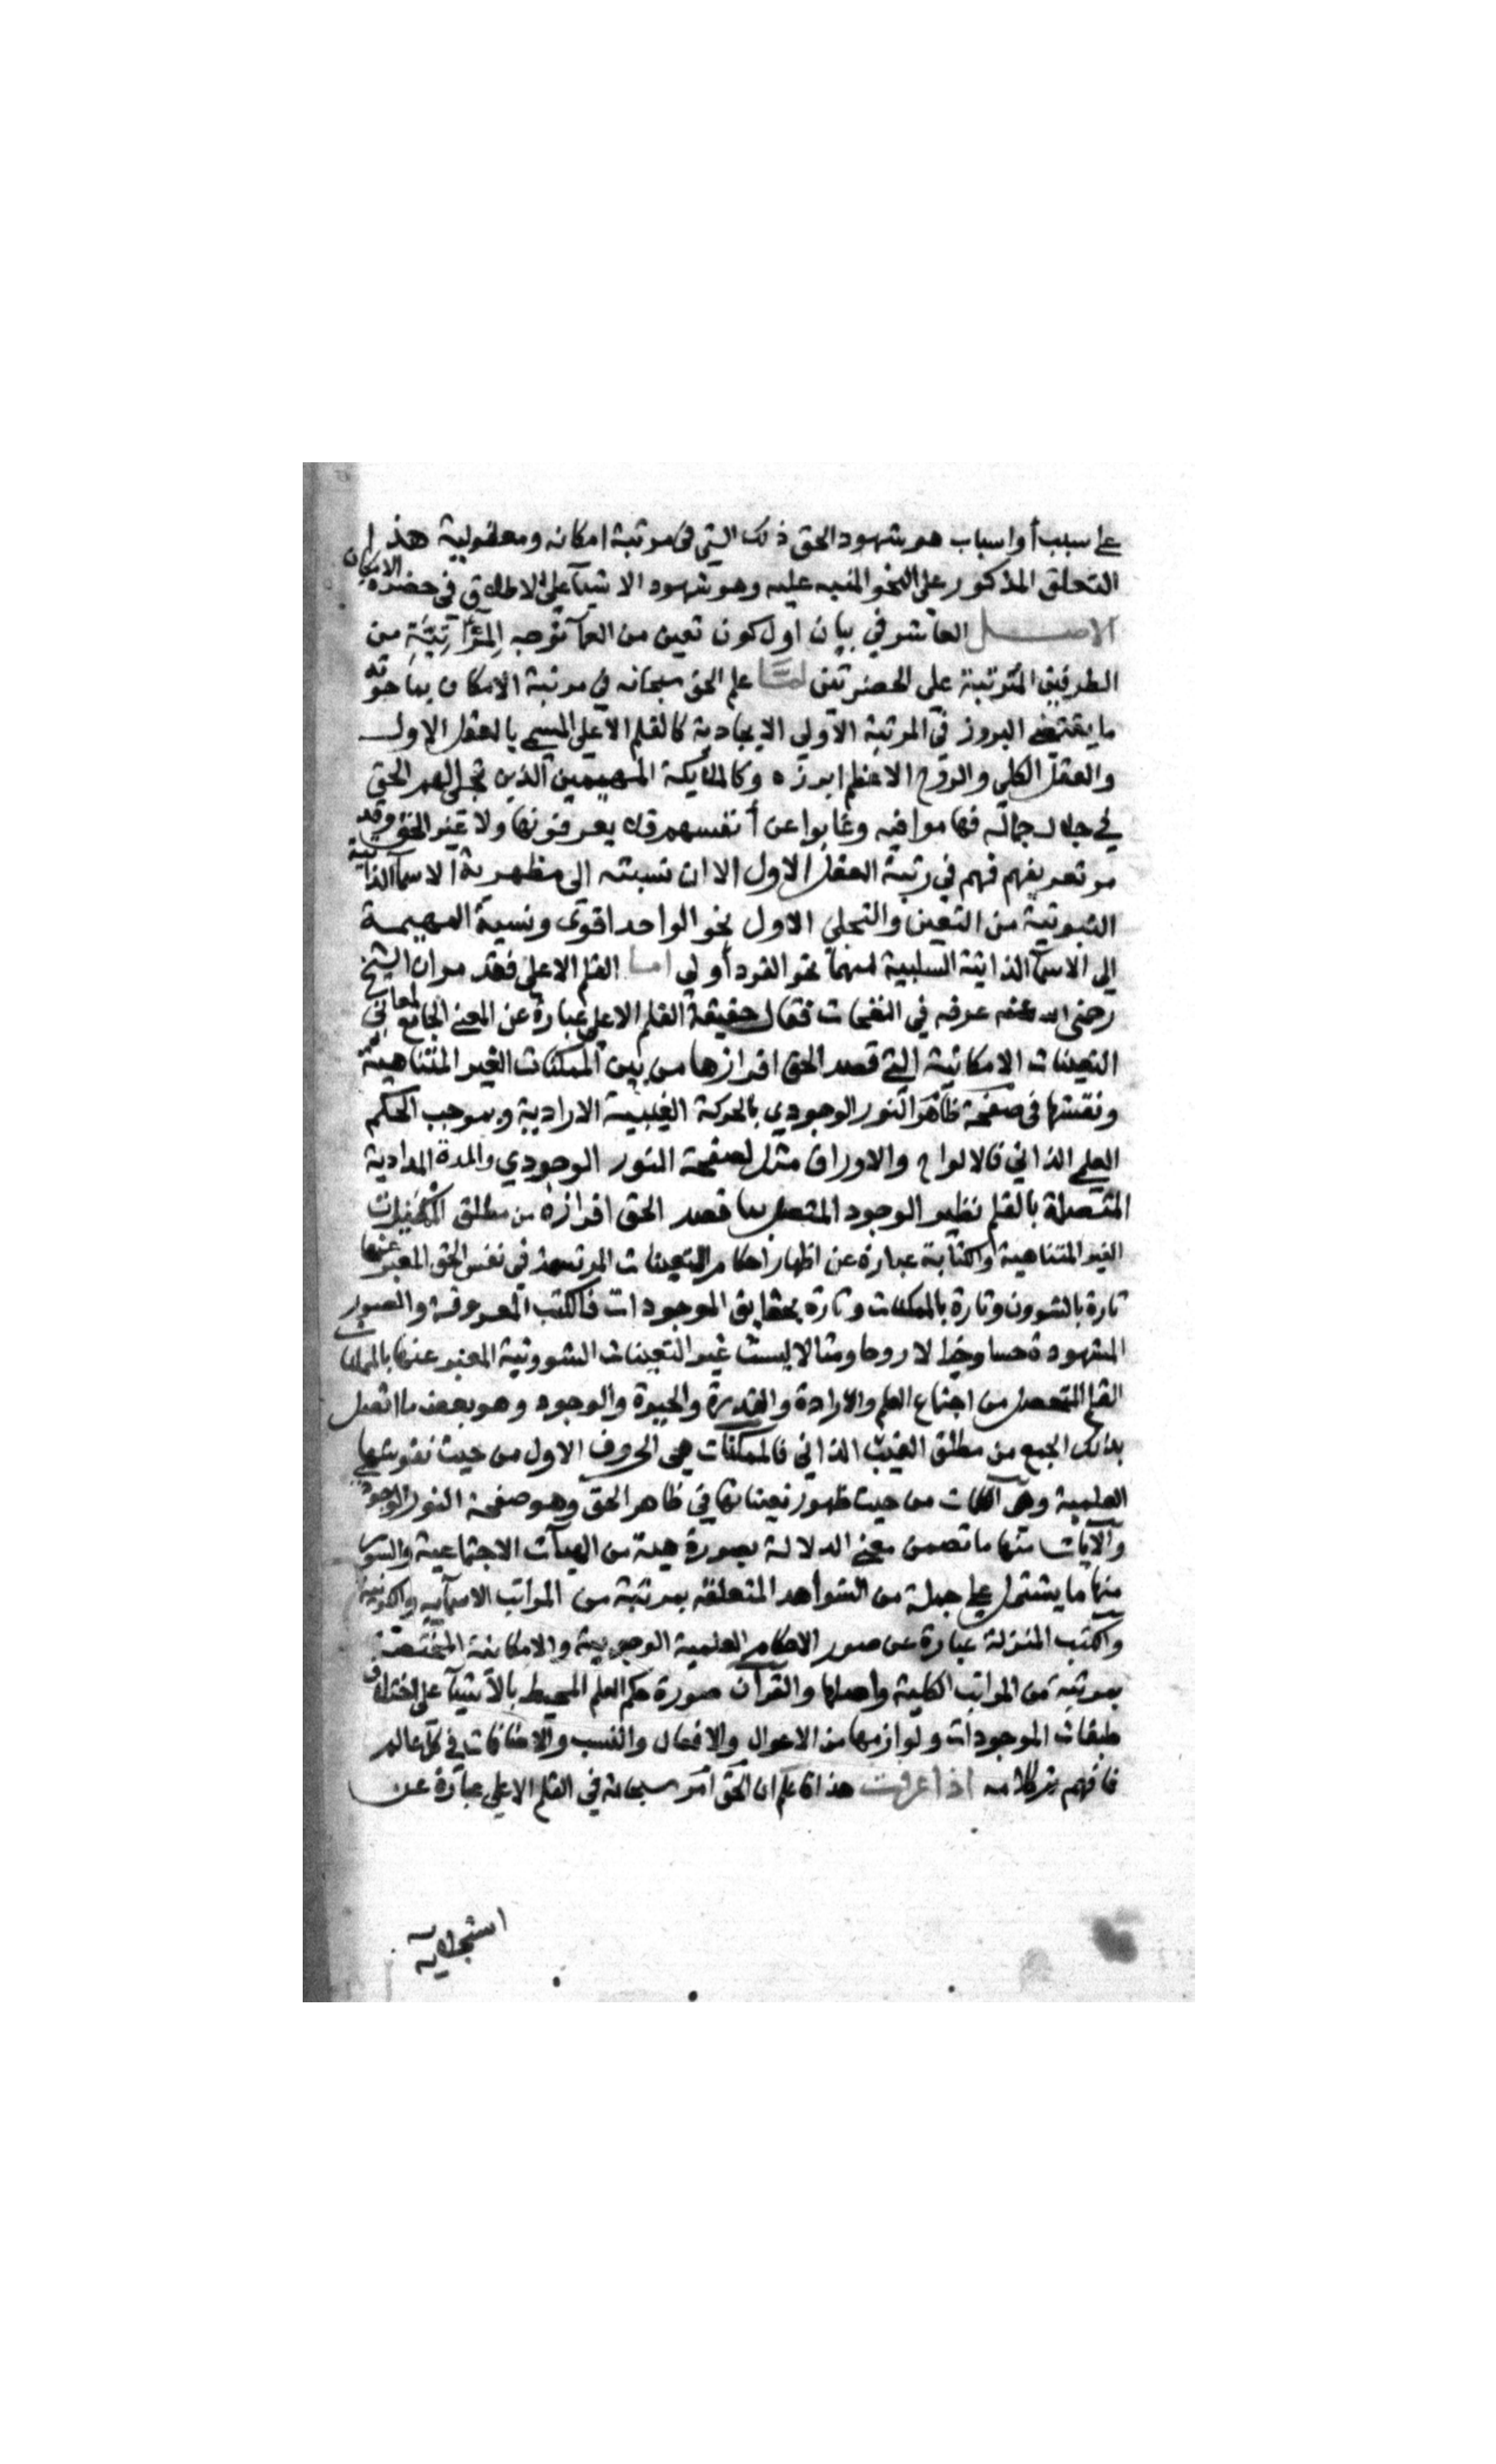 على سبب أو اسباب هو شهود الحق ذلك الشي في مرتبة امكانه ومعقولية هذا
التعلق المذكور على النحو المنبه عليه وهو شهود الاشيآ على الاطلاق في حضرة الامكان
الاصل العاشر في بيان اول كون تعين من العمآ توجه من
الطرفين المترتبة على الحضرتين لما علم الحق سبحانه في مرتبة الامكان بما حوته
ما يقتضي البروز في المرتبة الاولى الايجادية كالقلم الاعلى المسمى بالعقل الاول
والعقل الكلي والروح الاعظم ابرزه وكالملائكة المهيمين الذين تجلى لهم الحق
في جلال جماله فهاموا فيه وغابوا عن أنفسهم فلا يعرفونها ولا غير الحق وقد
مر تعريفهم فهم في رتبة العقل الاول الا ان نسبته الى مظهرية الاسمآ الذاتية
الثبوتية من التعين والتجلي الاول نحو الواحد اقوى ونسبة المهيمة
الى الاسمآ الذاتية السلبية منهما نحو الفرد أولى اما القلم الاعلى فقد مر ان الشيخ
رضى الله عنه عرفه في النفحات فقال حقيقة القلم الاعلى عبارة عن المعنى الجامع لمعاني
التعينات الامكانية التي قصد الحق افرازها من بين الممكنات الغير المتناهية
ونقشها في صفحة ظاهر النور الوجودي بالحركة الغيبية الارادية وبموجب الحكم
العلمي الذاتي فالالواح والاوراق مثل لصفحة النور الوجودي والمدة المدادية
المتصلة بالقلم نظير الوجود المتصل بما قصد الحق افرازه من مطلق الممكنات
الغير المتناهية والكتابة عبارة عن اظهار احكام التعينات المرتسمة في نفس الحق المعبر عنها
تارة بالشوون وتارة بالممكنات وتارة بحقايق الموجودات فالكتب المعروفة والصور
المشهودة حسا وخيالا روحا ومثالا ليست غير التعينات الشوونية المعبر عنها بالممكنات
القلم المتحصل من اجتماع العلم والارادة والقدرة والحيوة والوجود وهو بعض ما اتصل
بذلك الجمع من مطلق الغيب الذاتي فالممكنات هي الحروف الاول من حيث نقوشها
العلمية وهي الكلمات من حيث ظهور تعيناتها في ظاهر الحق وهو صفحة النور الوجودي
والآيات منها ما تضمن معنى الدلالة بصورة هيئة من الهيآت الاجتماعية والسور
منها ما يشتمل على جملة من الشواهد المتعلقة بمرتبة من المراتب الاسمآيه والكونية
والكتب المنزلة عبارة عن صور الاحكام العلمية الوجوبية والامكانية المختصة
بمرتبة من المراتب الكلية واهلها والقرآن صورة حكم العلم المحيط بالاشيآ على اختلاف
طبقات الموجودات ولوازمها من الاحوال والافعال والنسب والاضافات في كل عالم
فافهم تم كلامه اذا عرفت هذا فاعلم ان الحق امر سبحانه في القلم الاعلى عبارة عن
استجلائه